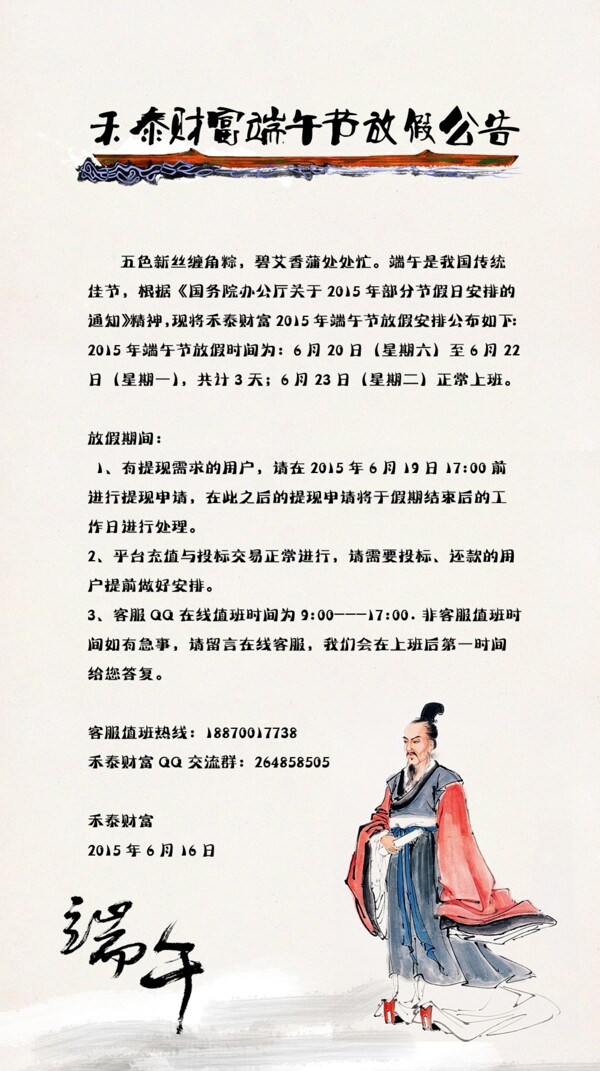 禾泰财富端午节放假公告
五色新丝缠角粽，碧艾香蒲处处忙。端午是我国传统
佳节，根据《国务院办公厅关于2015年部分节假日安排的
通知》精神，现将禾泰财富2015年端午节放假安排公布如下：
2015年端午节放假时间为：6月20日（星期六）至6月22
日（星期一），共计3天；6月23日（星期二）正常上班。
放假期间：
1、有提现需求的用户，请在2015年6月19日17:00前
进行提现申请，在此之后的提现申请将于假期结束后的工
作日进行处理。
2、平台充值与投标交易正常进行，请需要投标、还款的用
户提前做好安排。
3、客服QQ在线值班时间为9:00---17:00．非客服值班时
间如有急事，请留言在线客服，我们会在上班后第一时间
给您答复。
客服值班热线：18870017738
禾泰财富QQ交流群：264858505
禾泰财富
2015年6月16日
端午